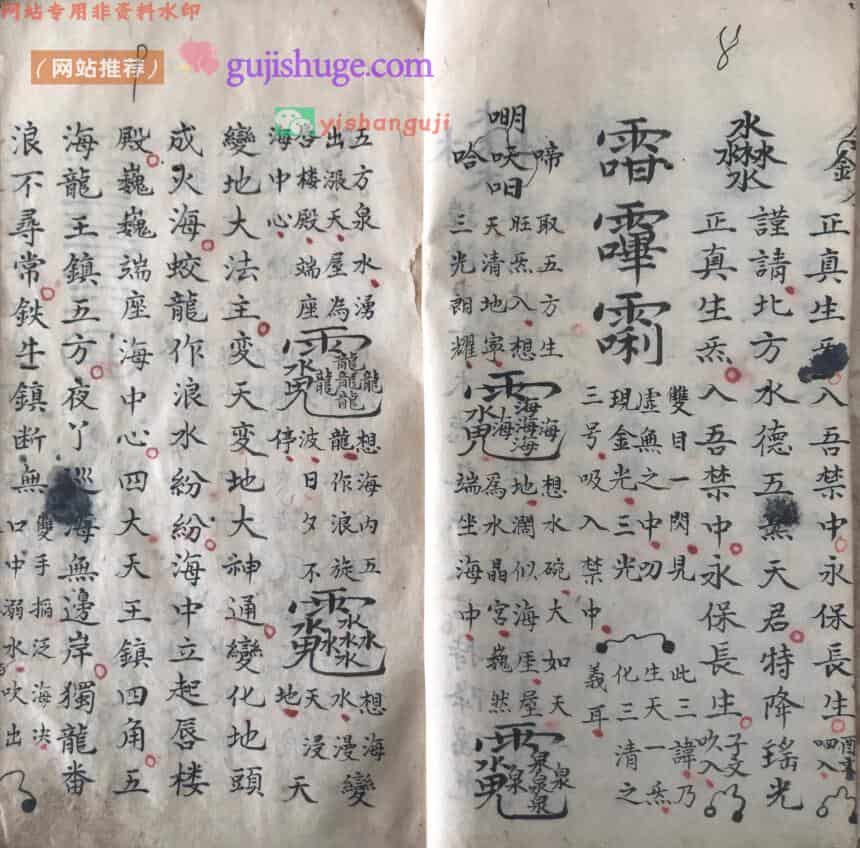 网站专用非资料水印
(网站推荐)
gujishuge.com
yishanguji
8
9
金
正真生炁入吾禁中永保長生
吸入
水水水水水
謹請北方水德五炁天君特降瑤光
正真生炁入吾禁中永保長生
子文
吹入
雙目一閃見
虛無之中刃
現金光三光
三号吸入禁中
此三諱乃
生天一炁
化三清之
義耳
啼
明
哈
取五方生
旺炁入想
天清地寧
三光朗耀
海海海海海
想水碗大如天
地濶似海座屋
爲水晶宮巍然
端坐海中
泉泉泉泉泉
五方泉水湧
出漲天屋為
楼殿端座
海中心
龍龍龍龍龍
想海內五
龍作浪旋
波日夕不
停
水水水水水
想海
水漫
天浸
地
變天
變地大法主变天变地大神通變化地頭
成火海蛟龍作浪水紛紛海中立起唇楼
殿巍巍端座海中心四大天王鎮四角五
海龍王鎮五方夜丫巡海無邊岸獨龍番
浪不尋常鉄牛鎮断無
雙手搯泛海决
口中溺水吹出